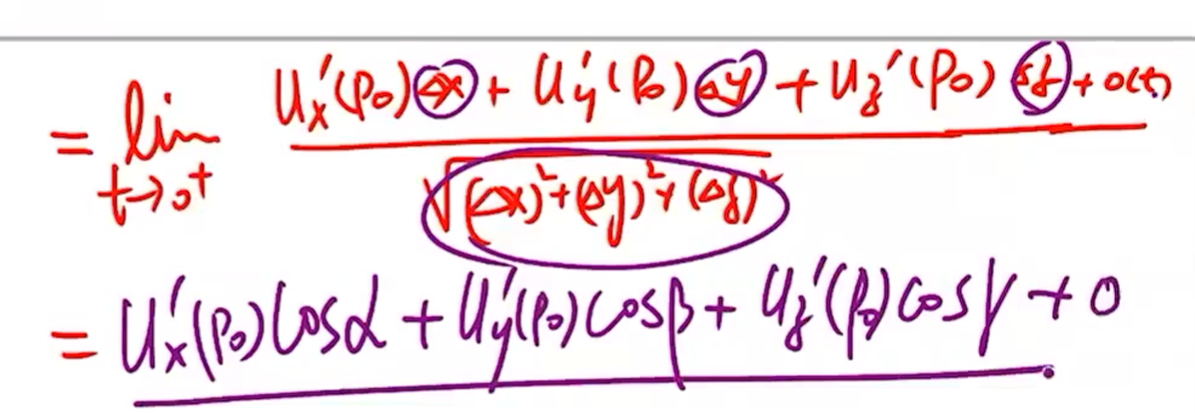 = lim t→0⁺ (U'x(P₀)Δx + U'y(P₀)Δy + U'z(P₀)Δz + o(t)) / √((Δx)²+(Δy)²+(Δz)²)
= U'x(P₀)cosα + U'y(P₀)cosβ + U'z(P₀)cosγ + 0